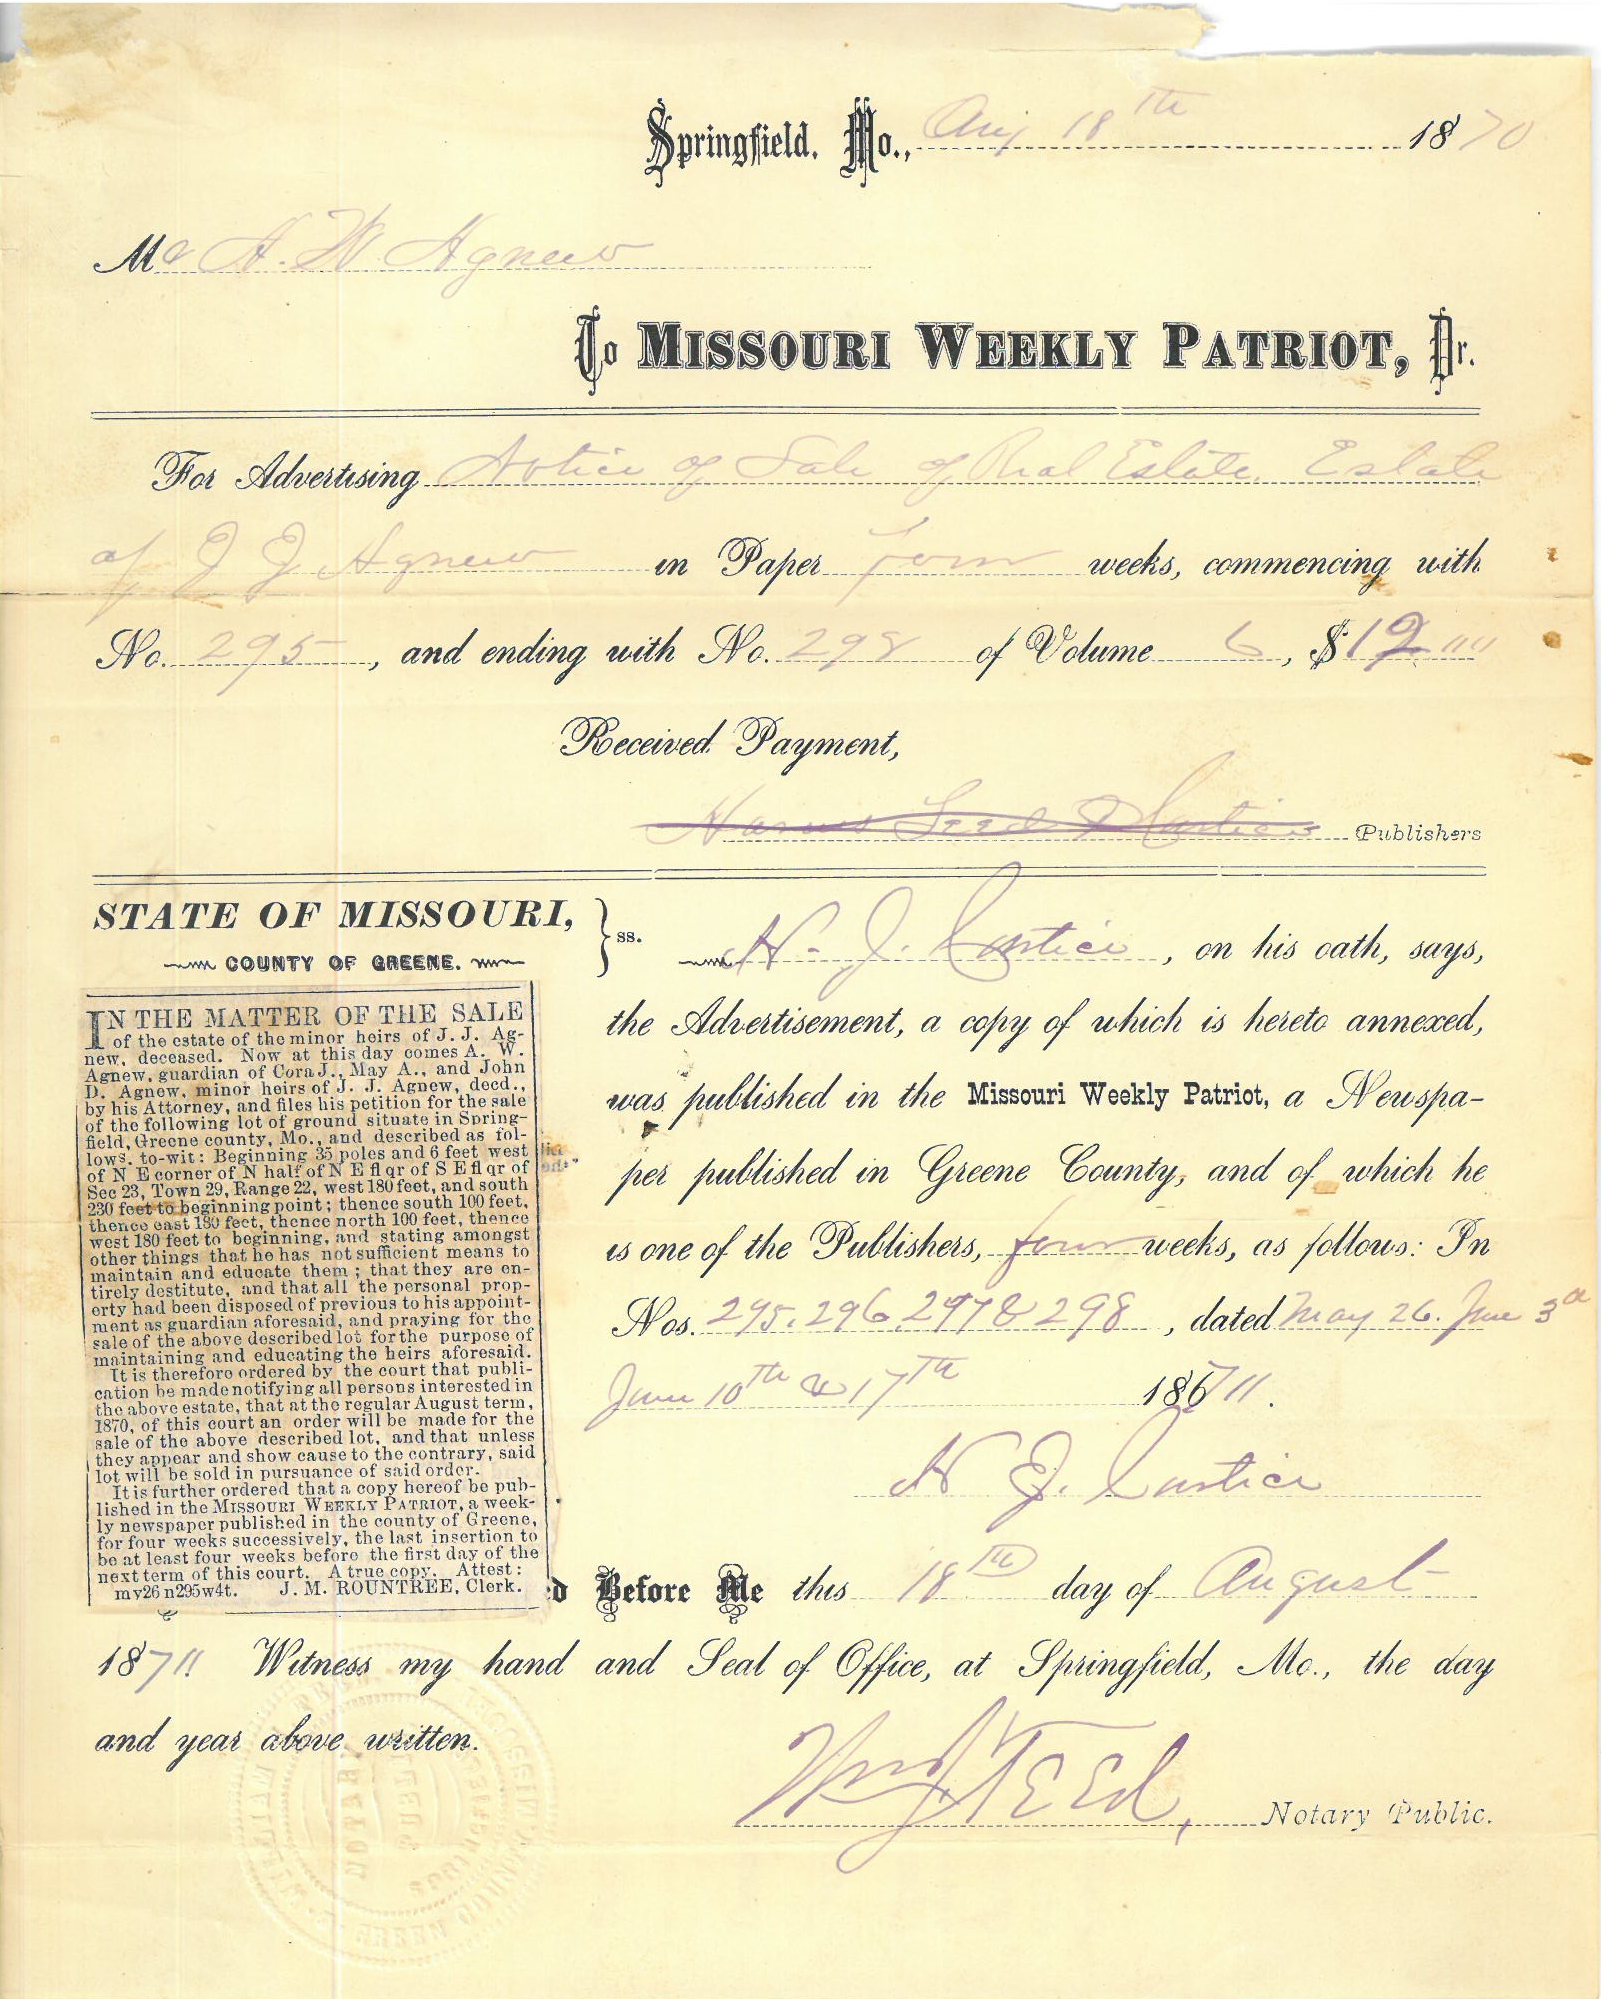 Springfield, Mo., Aug 18th 1870
Mr A. W. Agnew
To MISSOURI WEEKLY PATRIOT, Dr.
For Advertising Notice of Sale of Real Estate, Estate
of J J Agnew in Paper four weeks, commencing with
No. 295, and ending with No. 298 of Volume 6, $12 00
Received Payment,
Publishers
STATE OF MISSOURI, } ss.
COUNTY OF GREENE.
IN THE MATTER OF THE SALE
of the estate of the minor heirs of J. J. Ag-
new, deceased. Now at this day comes A. W.
Agnew, guardian of Cora J., May A., and John
D. Agnew, minor heirs of J. J. Agnew, decd.,
by his Attorney, and files his petition for the sale
of the following lot of ground situate in Spring-
field, Greene county, Mo., and described as fol-
lows, to-wit: Beginning 35 poles and 6 feet west
of N E corner of N half of N E fl qr of S E fl qr of
Sec 23, Town 29, Range 22, west 180 feet, and south
230 feet to beginning point; thence south 100 feet,
thence east 180 feet, thence north 100 feet, thence
west 180 feet to beginning, and stating amongst
other things that he has not sufficient means to
maintain and educate them; that they are en-
tirely destitute, and that all the personal prop-
erty had been disposed of previous to his appoint-
ment as guardian aforesaid, and praying for the
sale of the above described lot for the purpose of
maintaining and educating the heirs aforesaid.
It is therefore ordered by the court that publi-
cation be made notifying all persons interested in
the above estate, that at the regular August term,
1870, of this court an order will be made for the
sale of the above described lot, and that unless
they appear and show cause to the contrary, said
lot will be sold in pursuance of said order.
It is further ordered that a copy hereof be pub-
lished in the MISSOURI WEEKLY PATRIOT, a week-
ly newspaper published in the county of Greene,
for four weeks successively, the last insertion to
be at least four weeks before the first day of the
next term of this court. A true copy. Attest:
my26 n295w4t. J. M. ROUNTREE, Clerk.
J. , on his oath, says,
the Advertisement, a copy of which is hereto annexed,
was published in the Missouri Weekly Patriot, a Newspa-
per published in Greene County, and of which he
is one of the Publishers, four weeks, as follows: In
Nos. 295. 296. 297 & 298, dated May 26. June 3d
June 10th & 17th 1870.
J.
d Before Me this 18th day of August
1870. Witness my hand and Seal of Office, at Springfield, Mo., the day
and year above written.
Notary Public.